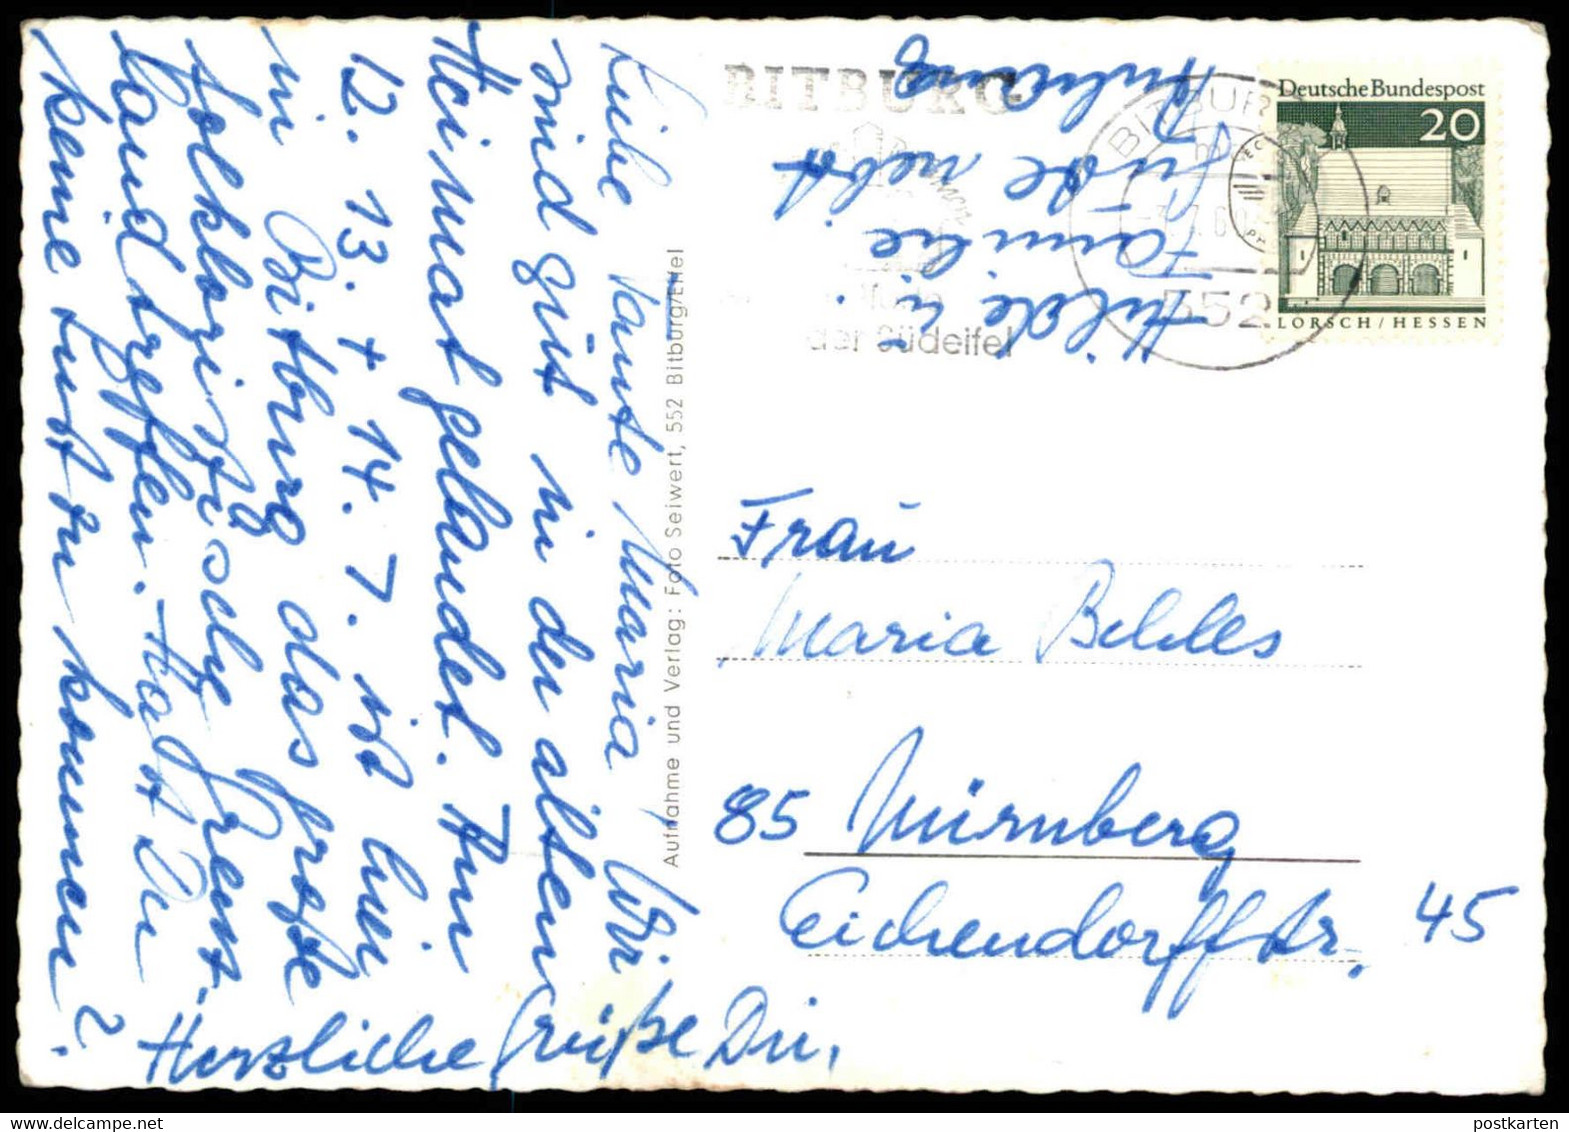 Liebe Tante Maria, Wir
sind gut in der alten
Heimat gelandet. Am
12. 13. + 14. 7. ist hier
in Bitburg das große
Folkloristische Grenz-
landtreffen. Hast Du
keine Lust zu kommen?
Herzliche Grüße Dir,
Hilde u.
Familie
Grüße nebst
Anhang
Aufnahme und Verlag: Foto Seiwert, 552 Bitburg/Eifel
BITBURG
der Südeifel
BITBURG
552
Deutsche Bundespost
20
LORSCH/HESSEN
Frau
Maria Billes
85 Nürnberg
Eichendorffstr. 45
postkarten